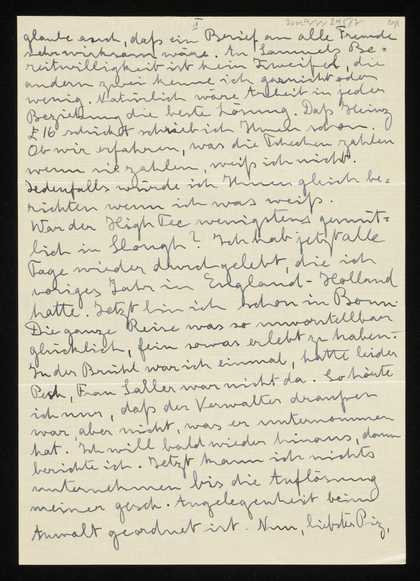 II
glaube auch, daß ein Brief an alle Freunde
sehr wirksam wäre. An Sammels Be-
reitwilligkeit ist kein Zweifel, die
andern zwei kenne ich garnicht oder
wenig. Natürlich wäre Arbeit in jeder
Beziehung die beste Lösung. Daß Heinz
£ 16 schickt schrieb ich Ihnen schon.
Ob wir erfahren, was die Tschechen zahlen
wenn sie zahlen, weiß ich nicht.
Jedenfalls würde ich Ihnen gleich be-
richten wenn ich was weiß.
War der High Tee wenigstens gemüt-
lich in Slough? Ich hab jetzt alle
Tage wieder durchgelebt, die ich
voriges Jahr in England-Holland
hatte. Jetzt bin ich schon in Bonn.
Die ganze Reise was so unvorstellbar
glücklich, fein sowas erlebt zu haben.
In der Brühl war ich einmal, hatte leider
Pech, Frau Saller war nicht da. So hörte
ich nur, daß der Verwalter draußen
war, aber nicht, was er unternommen
hat. Ich will bald wieder hinaus, dann
berichte ich. Jetzt kann ich nichts
unternehmen bis die Auflösung
meiner gesch. Angelegenheit beim
Anwalt geordnet ist. Nun, liebster Piz,